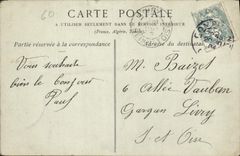 60
CARTE POSTALE
A UTILISER SEULEMENT DANS LE SERVICE INTÉRIEUR
(France, Algérie, Tunisie)
Partie réservée à la correspondance
Adresse du destinataire
Vous souhaite
bien le bonjour
Paul
M. Buizet
6 Allée Vauban
Gargan Livry
S. et Oise